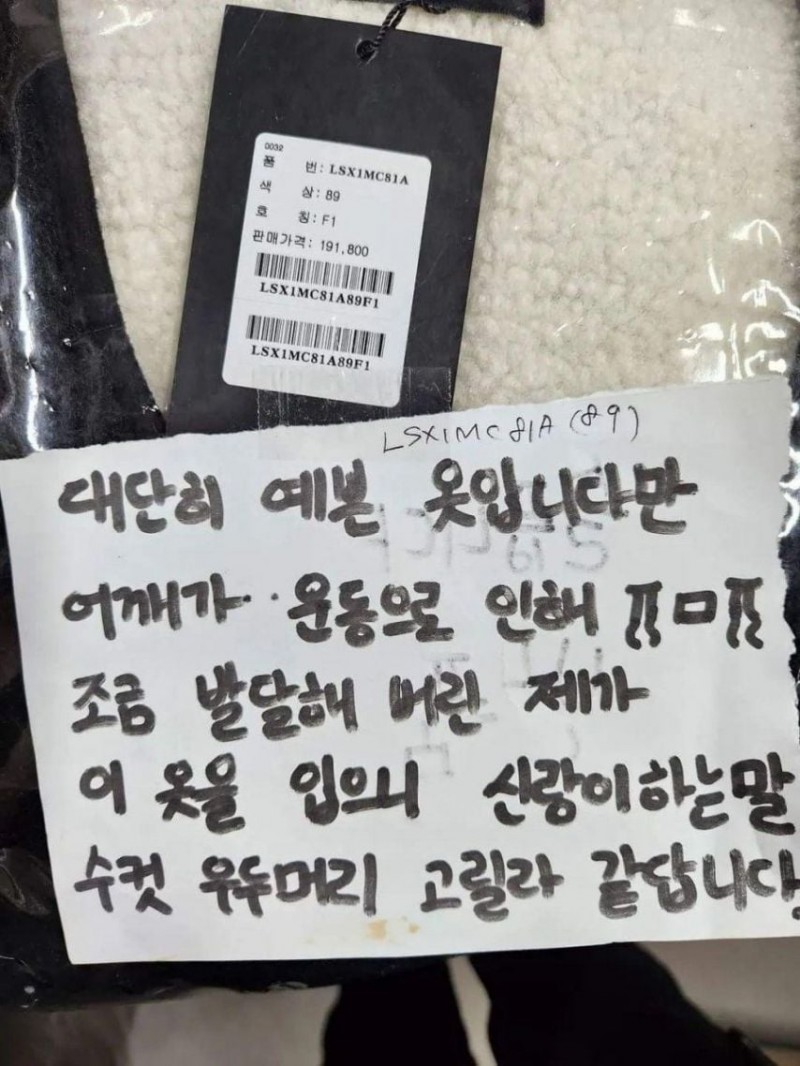 0032
품 번: LSX1MC81A
색 상: 89
호 칭: F1
판매가격: 191,800
LSX1MC81A89F1
LSX1MC81A89F1
LSX1MC81A (89)
대단히 예쁜 옷입니다만
어깨가·· 운동으로 인해 ㅠㅁㅠ
조금 발달해 버린 제가
이 옷을 입으니 신랑이하는말
수컷 우두머리 고릴라 같답니다!